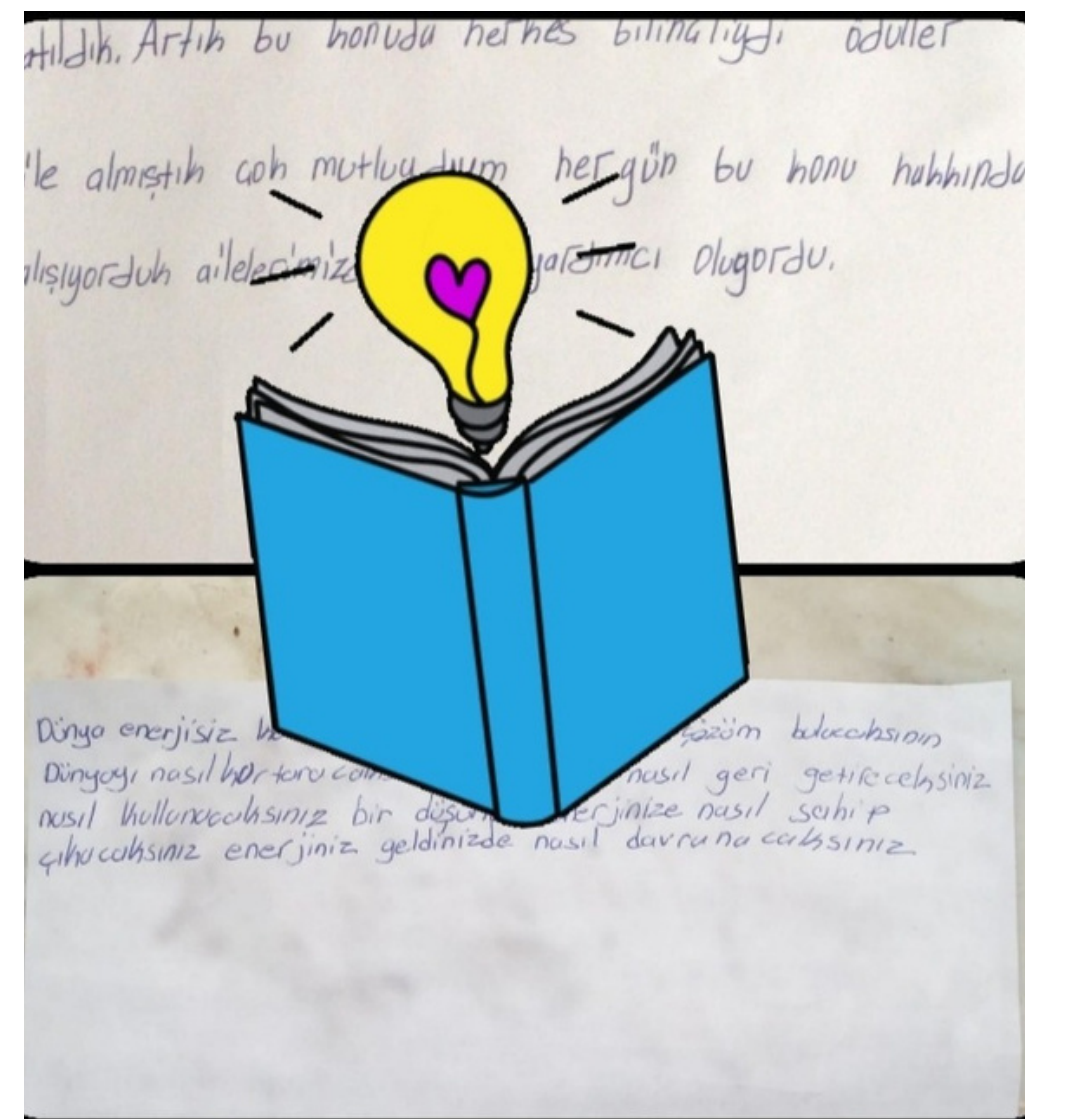 atıldık. Artık bu konuda herkes bilinçliydi ödüller
ile almıştık çok mutluydum her gün bu konu hakkında
alışıyorduk ailelerimize yardımcı oluyordu.
Dünya enerjisiz çözüm bulacaksının
Dünyayı nasıl kurtaracak nasıl geri getireceksiniz
nasıl kullanacaksınız bir düşün erjinize nasıl sahip
çıkacaksınız enerjiniz geldinizde nasıl davranacaksınız